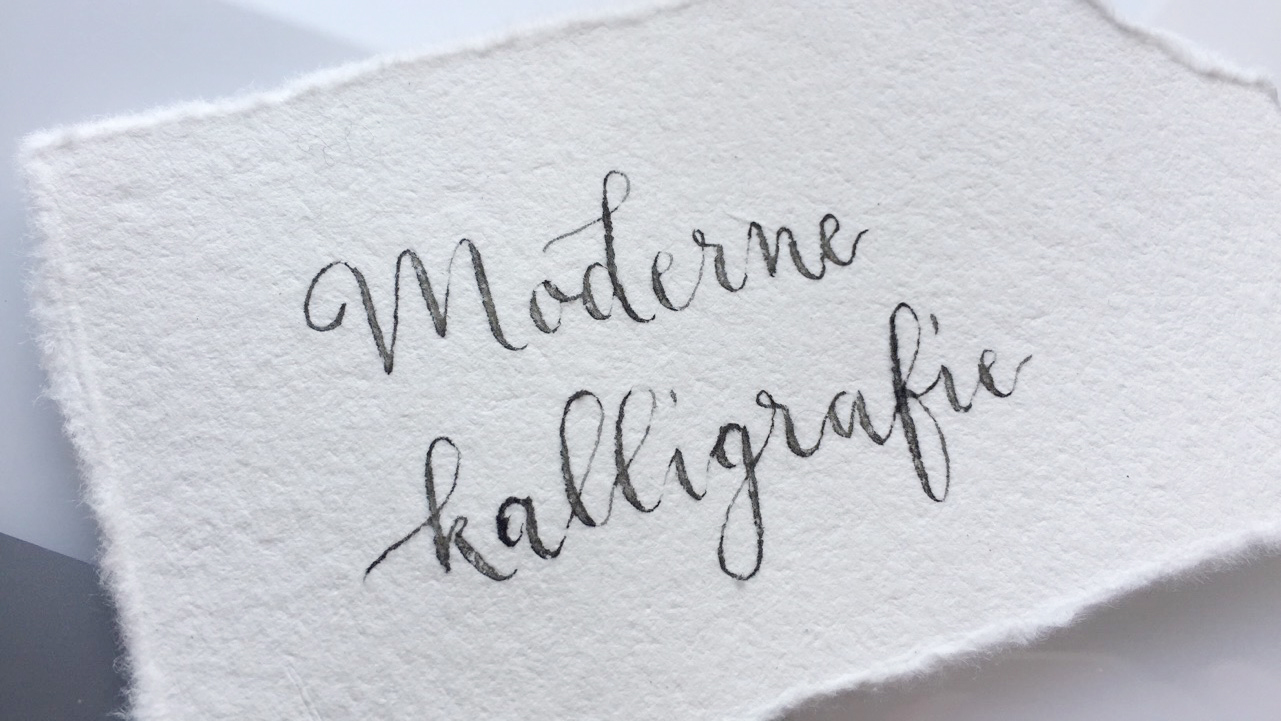 Moderne
kalligrafie